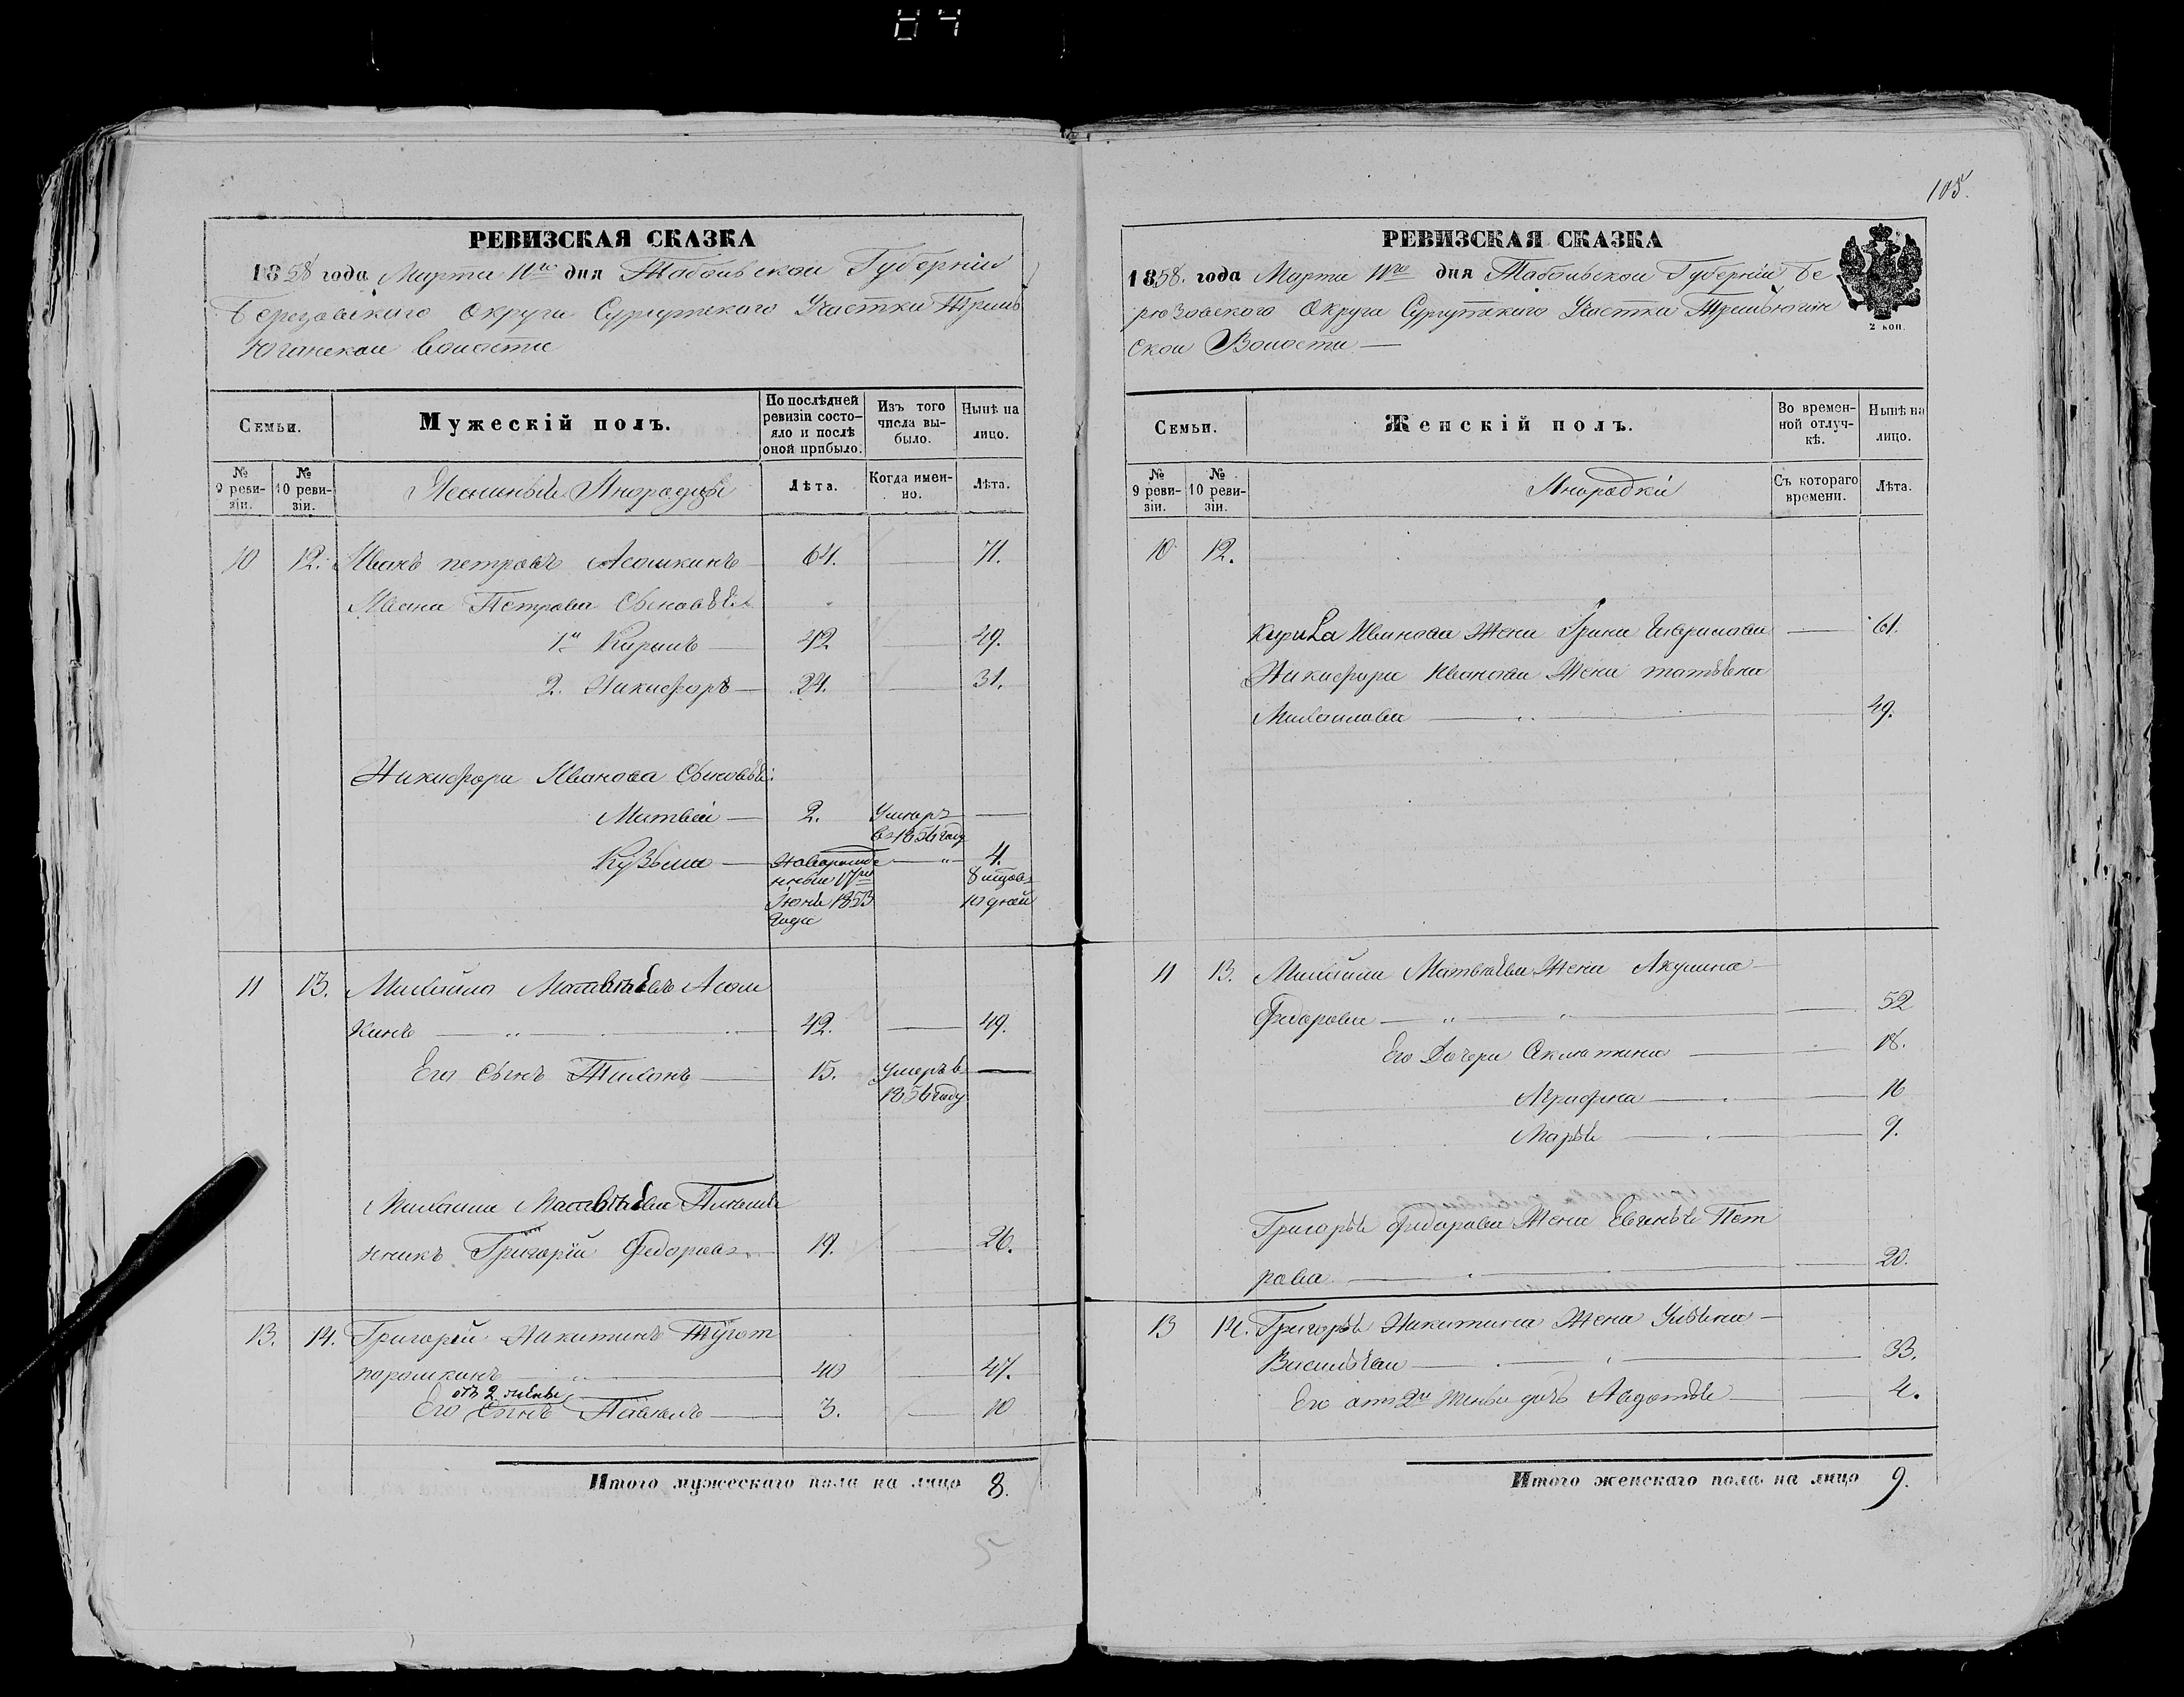 105.
РЕВИЗСКАЯ СКАЗКА
1858 года Марта 11го дня Тобольской Губернiи
Березовскаго Округа Сургутскаго Участка
Юганской волости
Семьи.
Мужескiй полъ.
По послѣдней ревизiи состояло и послѣ оной прибыло.
Изъ того числа выбыло.
Нынѣ на лицо.
№ 9 ревизiи.
№ 10 ревизiи.
Ясашныи Инородцы
Лѣта.
Когда именно.
Лѣта.
10 12. Иванъ петровъ 64. — 71.
Ивана Петрова Сыновья
1й Кирилъ — 42 — 49.
2. Никифоръ — 24. — 31.
Никифора Иванова Сыновья:
Матвей — 2. Умеръ —
въ 1856 году
Кузьма — новорожде — „ — 4.
нный 17го 8 мцов
Iюня 1853 10 дней
года
11 13. Михайло Матвѣевъ
кинъ — „ — 42. — 49.
Его сынъ Тихонъ — 15. умеръ в —
1856 году
Михаила Матвѣева Племя
нникъ Григорiй Федоровъ 19. — 26.
13. 14. Григорей Никитинъ
40 — 47.
отъ 2 жены
Его Сынъ Павелъ — 3. — 10
Итого мужескаго пола на лицо 8.
РЕВИЗСКАЯ СКАЗКА
1858. года Марта 11го дня Тобольской Губернiи Бе
резовского Округа Сургутскаго Участка
ской Волости —
2 коп.
Семьи.
Женскiй полъ.
Во временной отлучкѣ.
Нынѣ на лицо.
№ 9 ревизiи.
№ 10 ревизiи.
Инородки
Съ котораго времени.
Лѣта.
10 12.
Кирила Иванова Жена Ирина — 61.
Никифора Иванова Жена татьяна
Михаилова — „ — 49.
11 13. Михаила Матвѣева Жена Акулина —
Федорова — „ — „ — 52
Его Дочери — 18.
Аграфена — 16
Марья — 9.
Григорья Федорова Жена Евгенья Пет
рова — 20.
13 14. Григорья Никитина Жена Ульяна —
Васильева — 33.
Его отъ 2й жены дочь Авдотья — 4.
Итого женскаго пола на лицо 9.